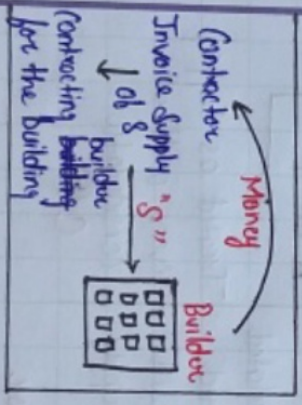 Money
Contractor
Builder
Invoice Supply
"S"
of S
builder
Contracting building
for the building